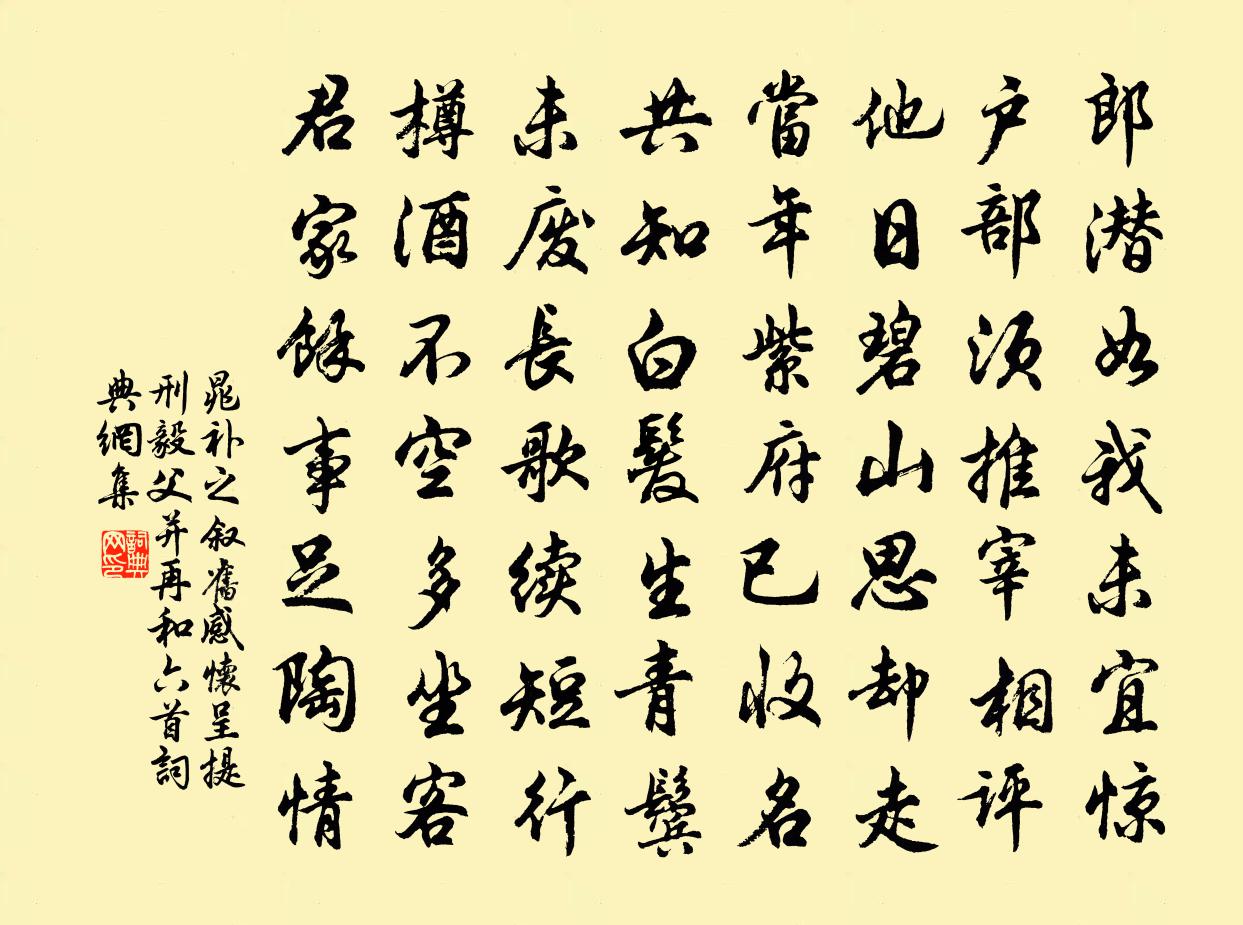 郎潜如我未宜惊
户部须推宰相评
他日碧山思却走
當年紫府已收名
共知白髮生青鬓
未废長歌续短行
樽酒不空多坐客
君家馀事足陶情
晁补之叙舊感懷呈提
刑毅父并再和六首詞
典網集
詞典网印